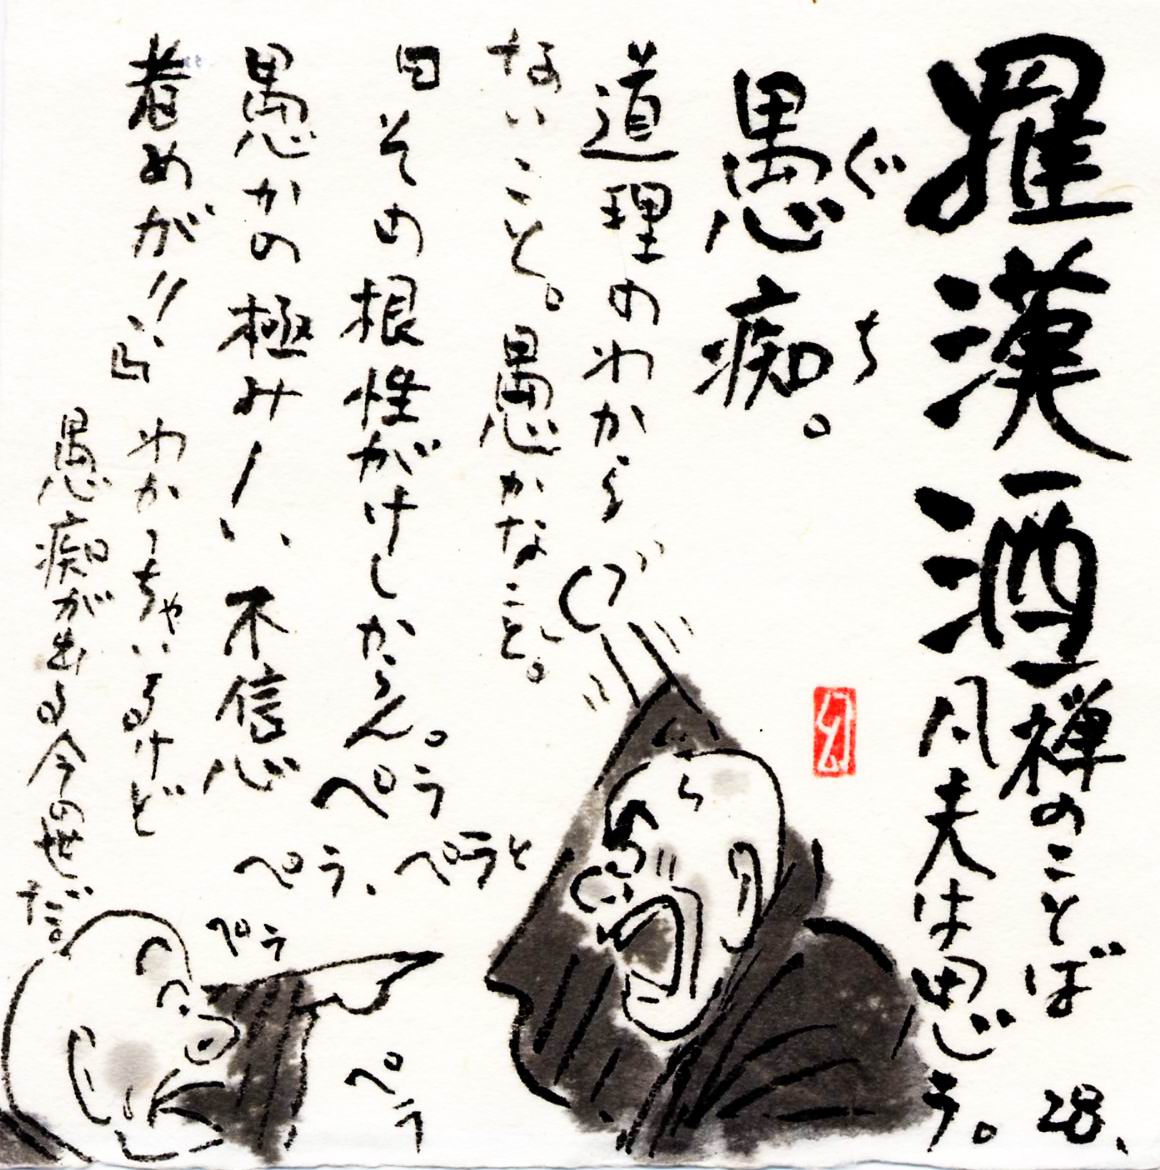 羅漢酒
禅のことば 28、
凡夫は思う。
愚痴。
ぐち
道理のわから
ないこと。愚かなこと。
曰その根性がけしからん。
愚かの極み!、不信心
者めが!!、」
わかっちゃいるけど
愚痴が出る今の世だ。
ペラ
ペラ、ペラと
ペラ
ペラ